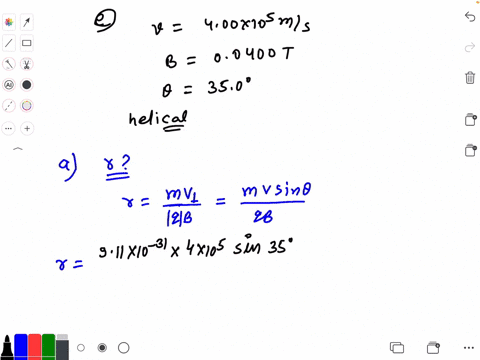 e) v = 4.00×10⁵ m/s
B = 0.0400 T
θ = 35.0°
helical
a) r?
r = mv⊥ / |q|B = mv sinθ / qB
r = 9.11×10⁻³¹ × 4×10⁵ sin 35°